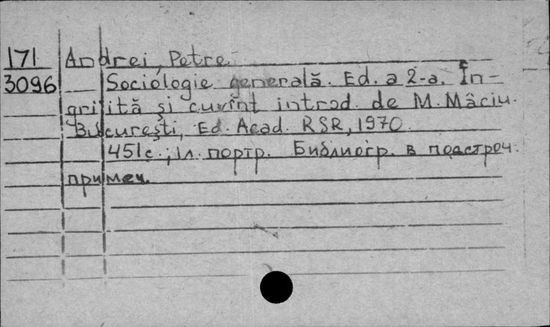 171 Andrei, Petre.
3096 Sociologie generală. Ed. a 2-a. În-
grijită și cuvînt introd. de M. Mâciu.
București, Ed. Acad. RSR, 1970.
451с.; 1л. портр. Библиогр. в подстроч.
примеч.